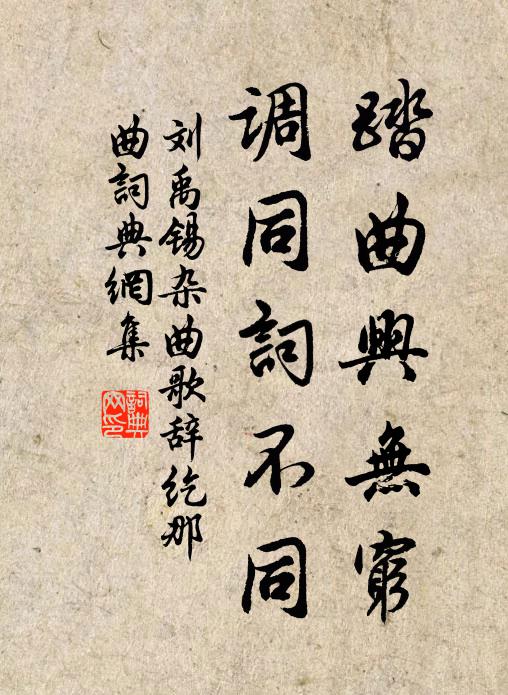 踏曲興無窮
调同詞不同
刘禹锡杂曲歌辞纥那
曲詞典網集
詞典
网印